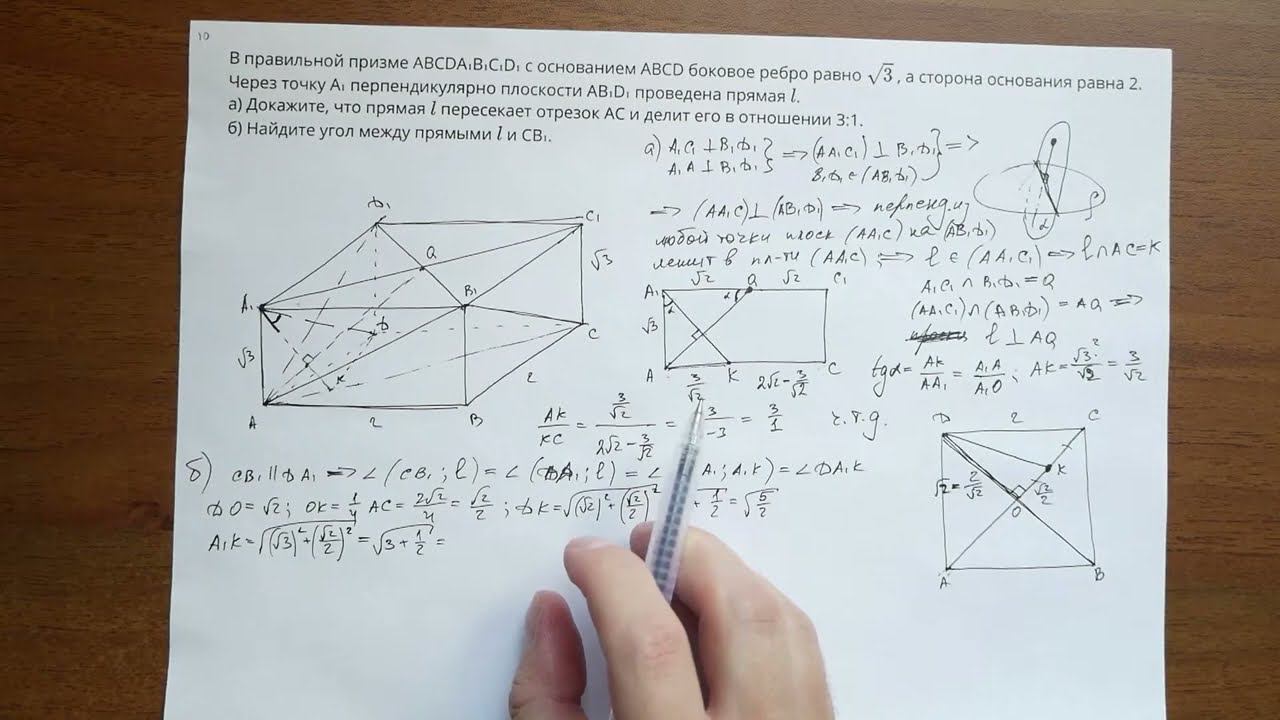 10
В правильной призме ABCDA₁B₁C₁D₁ с основанием ABCD боковое ребро равно √3, а сторона основания равна 2.
Через точку A₁ перпендикулярно плоскости AB₁D₁ проведена прямая l.
а) Докажите, что прямая l пересекает отрезок AC и делит его в отношении 3:1.
б) Найдите угол между прямыми l и CB₁.
а) A₁C₁ ⊥ B₁D₁ }
A₁A ⊥ B₁D₁ } => (AA₁C₁) ⊥ B₁D₁ }
B₁D₁ ∈ (AB₁D₁) } =>
=> (AA₁C) ⊥ (AB₁D₁) => перпенд. из
любой точки плоск (AA₁C) на (AB₁D₁)
лежит в пл-ти (AA₁C) => l ∈ (AA₁C₁) => l ∩ AC = K
A₁C₁ ∩ B₁D₁ = Q
(AA₁C₁) ∩ (AB₁D₁) = AQ =>
l ⊥ AQ
tgα = AK/AA₁ = A₁A/A₁O ; AK = √3²/√2 = 3/√2
α
β
D₁
C₁
Q
√3
A₁
B₁
D
C
√3
K
2
A
2
B
√2
√2
A₁
Q
C₁
α
α
√3
A
K
C
3/√2
2√2 - 3/√2
AK/KC = (3/√2)/(2√2 - 3/√2) = 3/ -3 = 3/1 ч.т.д.
D
2
C
K
√2 = 2/√2
√2/2
O
A
B
б) CB₁ || DA₁ => ∠(CB₁; l) = ∠(DA₁; l) = ∠ A₁; A₁K) = ∠DA₁K
DO = √2; OK = 1/4 AC = 2√2/4 = √2/2 ; DK = √((√2)² + (√2/2)² + 1/2 = √5/2
A₁K = √((√3)² + (√2/2)²) = √(3 + 1/2) =